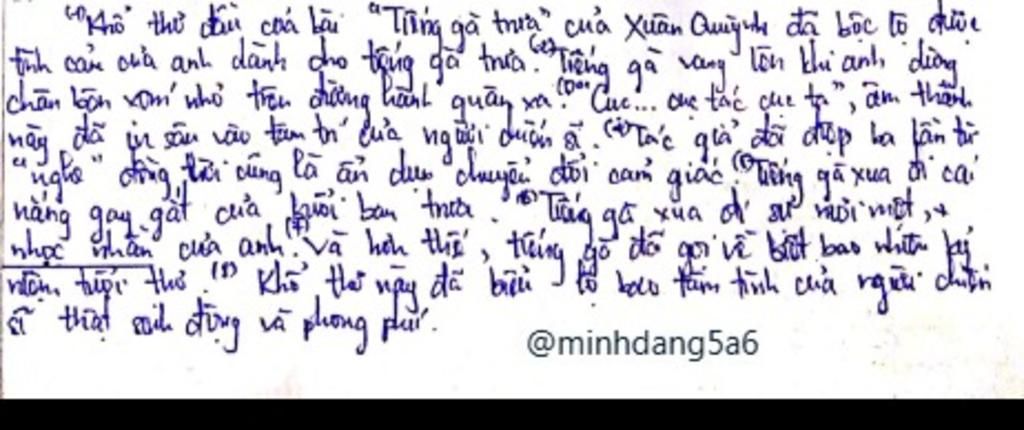 ⁽¹⁾Khổ thơ đầu của bài "Tiếng gà trưa" của Xuân Quỳnh đã bộc lộ được
tình cảm của anh dành cho tiếng gà trưa.⁽²⁾Tiếng gà vang lên khi anh dừng
chân bên xóm nhỏ trên đường hành quân xa.⁽³⁾"Cục... cục tác cục ta", âm thanh
này đã in sâu vào tâm trí của người chiến sĩ.⁽⁴⁾Tác giả đã điệp ba lần từ
"nghe" đồng thời cũng là ẩn dụ chuyển đổi cảm giác.⁽⁵⁾Tiếng gà xua đi cái
nắng gay gắt của buổi ban trưa.⁽⁶⁾Tiếng gà xua đi sự mỏi mệt,
nhọc nhằn của anh.⁽⁷⁾Và hơn thế, tiếng gà đã gọi về biết bao nhiêu kỷ
niệm tuổi thơ.⁽⁸⁾Khổ thơ này đã biểu lộ tâm tình của người chiến
sĩ thật sinh động và phong phú.
@minhdang5a6